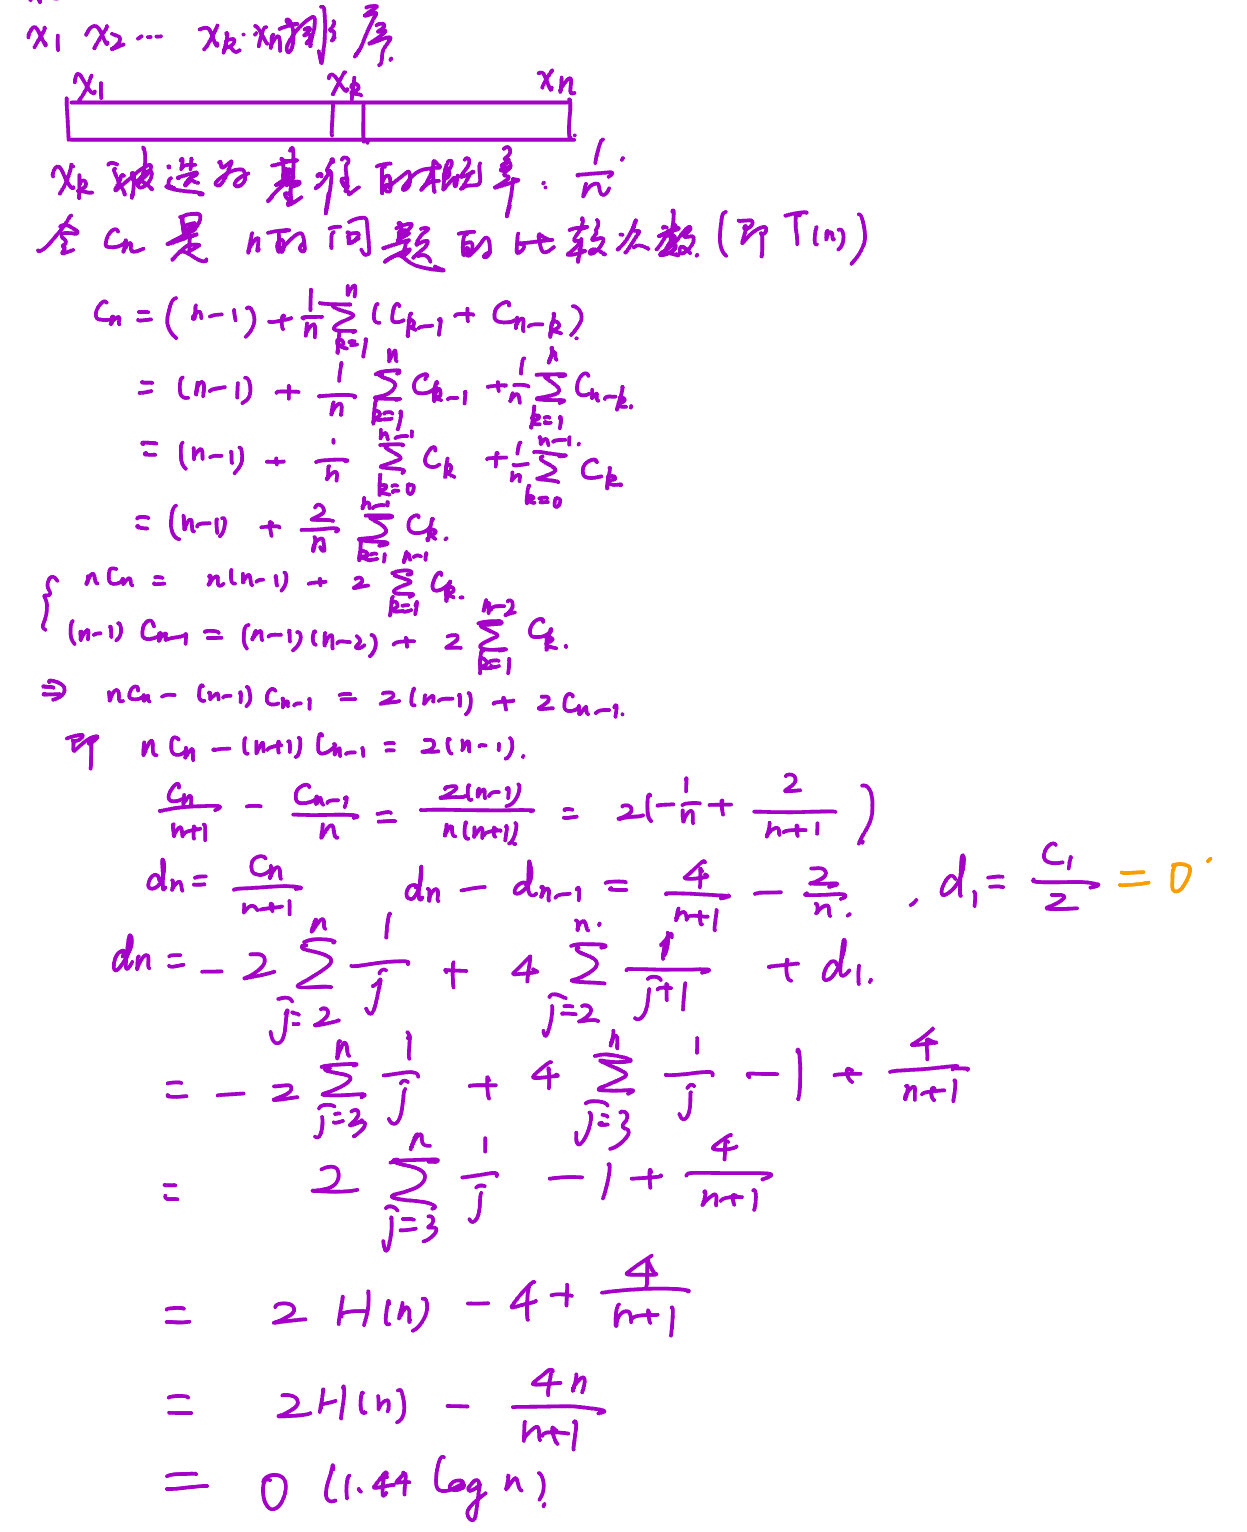 x₁ x₂ … x_k · x_n 排序.
x₁ x_k x_n
x_k 被选为基准的概率. 1/n.
令 C_n 是 n的问题的比较次数.(即 T(n))
C_n = (n-1) + 1/n ∑_{k=1}^{n} (C_{k-1} + C_{n-k})
= (n-1) + 1/n ∑_{k=1}^{n} C_{k-1} + 1/n ∑_{k=1}^{n} C_{n-k}.
= (n-1) + 1/n ∑_{k=0}^{n-1} C_k + 1/n ∑_{k=0}^{n-1} C_k
= (n-1) + 2/n ∑_{k=1}^{n-1} C_k.
{ nC_n = n(n-1) + 2 ∑_{k=1}^{n-1} C_k.
(n-1) C_{n-1} = (n-1)(n-2) + 2 ∑_{k=1}^{n-2} C_k.
⇒ nC_n - (n-1) C_{n-1} = 2(n-1) + 2C_{n-1}.
即 nC_n - (n+1) C_{n-1} = 2(n-1).
C_n/(n+1) - C_{n-1}/n = 2(n-1)/(n(n+1)) = 2(-1/n + 2/(n+1))
d_n = C_n/(n+1) d_n - d_{n-1} = 4/(n+1) - 2/n. , d₁ = C₁/2 = 0
d_n = -2 ∑_{j=2}^{n} 1/j + 4 ∑_{j=2}^{n} 1/(j+1) + d₁.
= -2 ∑_{j=3}^{n} 1/j + 4 ∑_{j=3}^{n} 1/j - 1 + 4/(n+1)
= 2 ∑_{j=3}^{n} 1/j - 1 + 4/(n+1)
= 2 H(n) - 4 + 4/(n+1)
= 2H(n) - 4n/(n+1)
= O (1.44 log n).